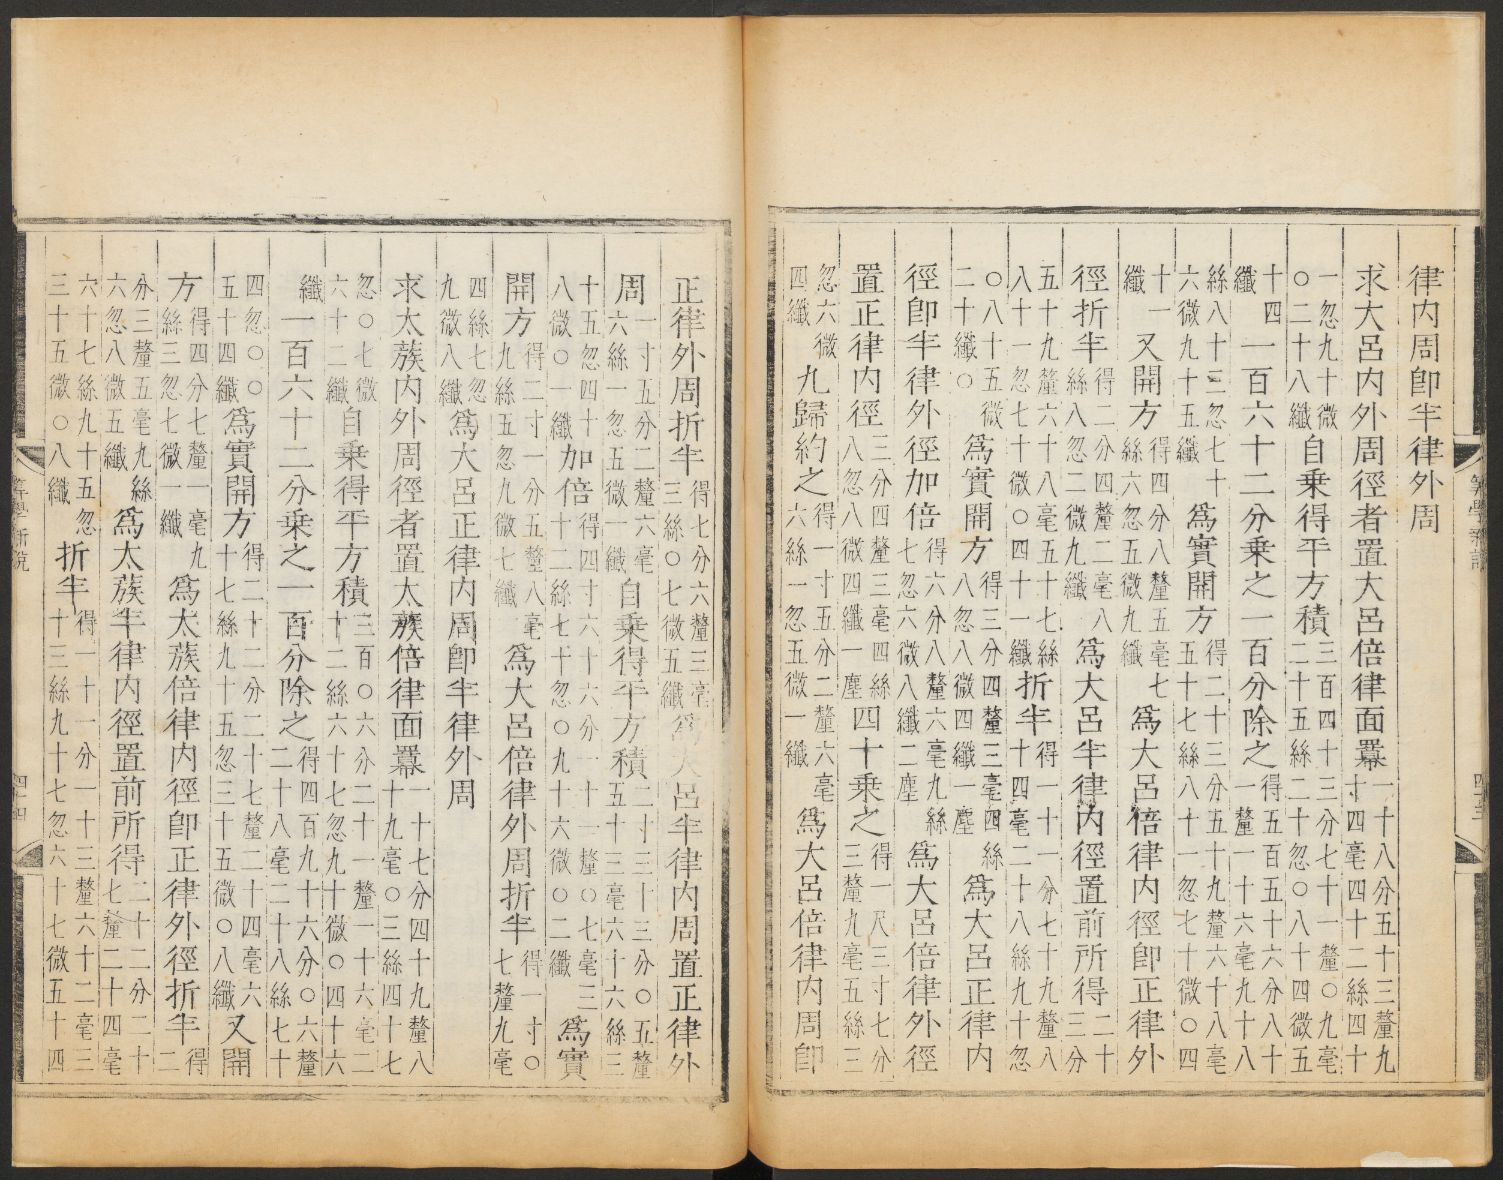 律內周卽半律外周
求大呂內外周徑者置大呂倍律面羃一十八分五十三釐九寸四毫四十二絲四十
一忽九十微○二十八纖自乘得平方積三百四十三分七十一釐○九毫二十五絲二十忽○八十四微五
十四纖一百六十二分乘之一百分除之得五百五十六分八十一釐一十六毫九十八
絲八十三忽七十六微九十五纖爲實開方得二十三分五十九釐六十八毫五十七絲八十一忽七十微○四
十一纖又開方得四分八釐五毫七絲六忽五微九纖爲大呂倍律內徑卽正律外
徑折半得二分四釐二毫八絲八忽二微九纖爲大呂半律內徑置前所得二十三分
五十九釐六十八毫五十七絲八十一忽七十微○四十一纖折半得一十一分七十九釐八十四毫二十八絲九十忽
○八十五微二十纖○爲實開方得三分四釐三毫四絲八忽八微四纖一塵爲大呂正律內
徑卽半律外徑加倍得六分八釐六毫九絲七忽六微八纖二塵爲大呂倍律外徑
置正律內徑三分四釐三毫四絲八忽八微四纖一塵四十乘之得一尺三寸七分三釐九毫五絲三
忽六微四纖九歸約之得一寸五分二釐六毫六絲一忽五微一纖爲大呂倍律內周卽
算學新說
四十三
正律外周折半得七分六釐三毫三絲○七微五纖爲大呂半律內周置正律外
周一寸五分二釐六毫六絲一忽五微一纖自乘得平方積二寸三十三分○五釐五十三毫六十六絲三
十五忽四十八微○一纖加倍得四寸六十六分一十一釐○七毫三十二絲七十忽○九十六微○二纖爲實
開方得二寸一分五釐八毫九絲五忽九微七纖爲大呂倍律外周折半得一寸○七釐九毫
四絲七忽九微八纖爲大呂正律內周卽半律外周
求太蔟內外周徑者置太蔟倍律面羃一十七分四十九釐八十九毫○三絲四十七
忽○七微六十二纖自乘得平方積三百○六分二十一釐一十六毫二十二絲六十七忽九十微○四十六
纖一百六十二分乘之一百分除之得四百九十六分○六釐二十八毫二十八絲七十
四忽○○五十四纖爲實開方得二十二分二十七釐二十四毫六十七絲九十五忽三十五微○八纖又開
方得四分七釐一毫九絲三忽七微一纖爲太蔟倍律內徑卽正律外徑折半得二
分三釐五毫九絲六忽八微五纖爲太蔟半律內徑置前所得二十二分二十七釐二十四毫
六十七絲九十五忽三十五微○八纖折半得一十一分一十三釐六十二毫三十三絲九十七忽六十七微五十四
算學新說
四十四